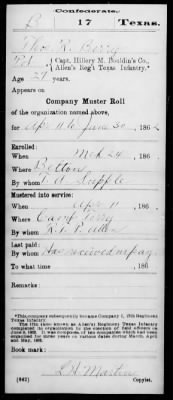 Confederate.
B 17 Texas.
Thos. R. Berry
Pvt., Capt. Hillery M. Bouldin's Co.,
Allen's Reg't Texas Infantry.*
Age 27 years.
Appears on
Company Muster Roll
of the organization named above,
for Apr 11 to June 30, 1862
Enrolled:
When Mch 24, 186
Where Belton
By whom
Mustered into service:
When Apr 11, 186
Where Camp Terry
By whom R. T. P. Allen
Last paid:
By whom Has received no pay
To what time , 186
Remarks:
*This company subsequently became Company I, 17th Regiment
Texas Infantry.
The 17th (also known as Allen's) Regiment Texas Infantry
completed its organization by the election of field officers on
June 9, 1862. It was composed of ten companies which had been
organized for three years on various dates during March, April
and May, 1862.
Book mark:
(642) Copyist.